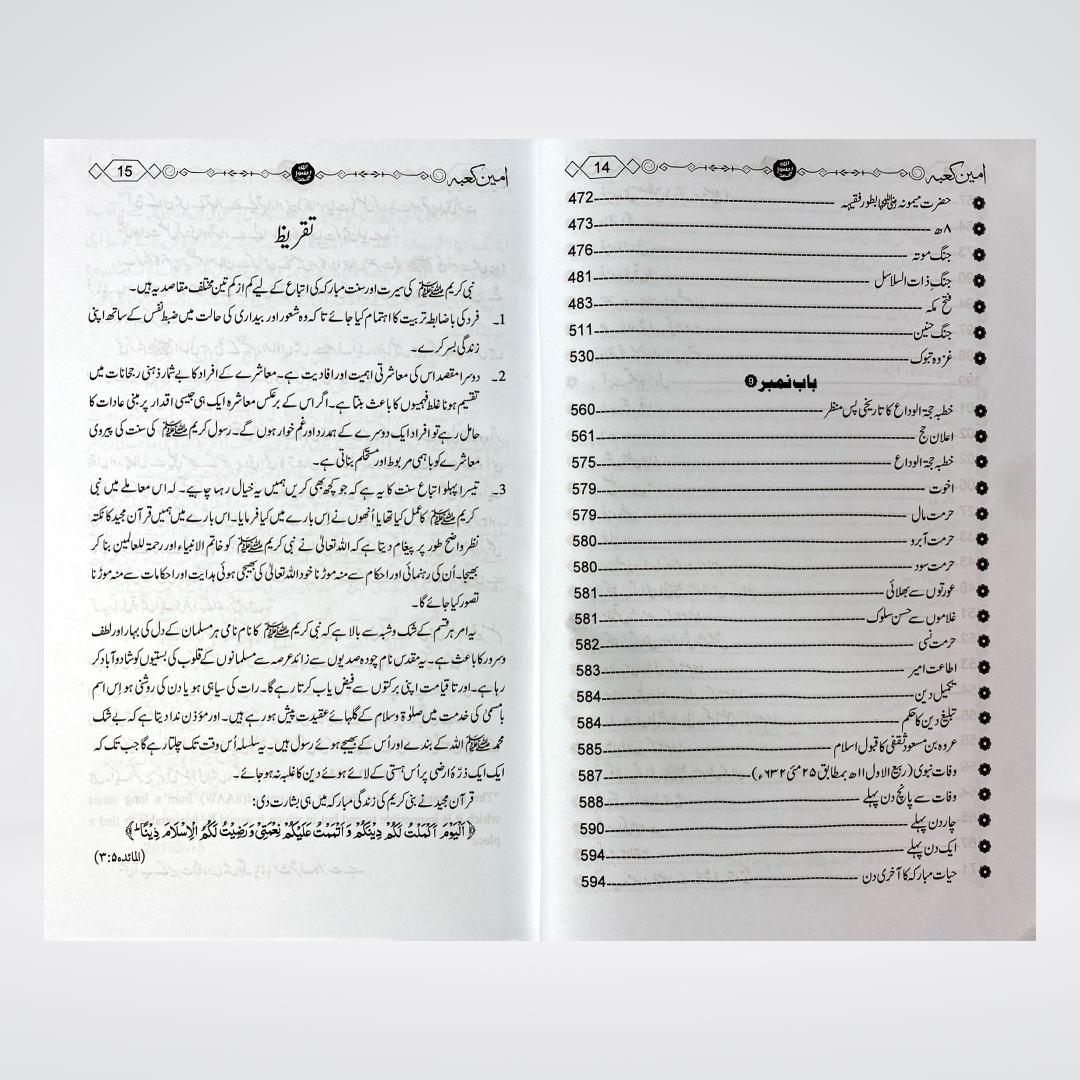 امین کعبہ 14
حضرت میمونہ رضی اللہ عنہا بطور فقیہہ 472
۸ھ 473
جنگ موتہ 476
جنگِ ذات السلاسل 481
فتح مکہ 483
جنگ حنین 511
غزوہ تبوک 530
باب نمبر 9
خطبہ حجۃ الوداع کا تاریخی پس منظر 560
اعلان حج 561
خطبہ حجۃ الوداع 575
اخوت 579
حرمت مال 579
حرمت آبرو 580
حرمت سود 580
عورتوں سے بھلائی 581
غلاموں سے حسن سلوک 581
حرمت نسی 582
اطاعت امیر 583
تکمیل دین 584
تبلیغ دین کا حکم 584
عروہ بن مسعود ثقفی کا قبول اسلام 585
وفات نبوی (ربیع الاول ۱۱ھ بمطابق ۲۵ مئی ۶۳۲ء) 587
وفات سے پانچ دن پہلے 588
چار دن پہلے 590
ایک دن پہلے 594
حیات مبارکہ کا آخری دن 594
امین کعبہ 15
تقریظ
نبی کریم ﷺ کی سیرت اور سنت مبارکہ کی اتباع کے لیے کم از کم تین مختلف مقاصد یہ ہیں۔
1۔ فرد کی باضابطہ تربیت کا اہتمام کیا جائے تاکہ وہ شعور اور بیداری کی حالت میں ضبط نفس کے ساتھ اپنی
زندگی بسر کرے۔
2۔ دوسرا مقصد اس کی معاشرتی اہمیت اور افادیت ہے۔ معاشرے کے افراد کا بے شمار ذہنی رجحانات میں
تقسیم ہونا غلط فہمیوں کا باعث بنتا ہے۔ اگر اس کے برعکس معاشرہ ایک ہی جیسی اقدار پر مبنی عادات کا
حامل رہے تو افراد ایک دوسرے کے ہمدرد اور غم خوار ہوں گے۔ رسول کریم ﷺ کی سنت کی پیروی
معاشرے کو باہمی مربوط اور مستحکم بناتی ہے۔
3۔ تیسرا پہلو اتباع سنت کا یہ ہے کہ جو کچھ بھی کریں ہمیں یہ خیال رہنا چاہیے۔ کہ اس معاملے میں نبی
کریم ﷺ کا عمل کیا تھا یا اُنھوں نے اِس بارے میں کیا فرمایا۔ اس بارے میں ہمیں قرآن مجید کا نکتہ
نظر واضح طور پر پیغام دیتا ہے کہ اللہ تعالیٰ نے نبی کریم ﷺ کو خاتم الانبیاء اور رحمۃ للعالمین بنا کر
بھیجا۔ اُن کی رہنمائی اور احکام سے منہ موڑنا خود اللہ تعالیٰ کی بھیجی ہوئی ہدایت اور احکامات سے منہ موڑنا
تصور کیا جائے گا۔
یہ امر ہر قسم کے شک و شبہ سے بالا ہے کہ نبی کریم ﷺ کا نام نامی ہر مسلمان کے دل کی بہار اور لطف
و سرور کا باعث ہے۔ یہ مقدس نام چودہ صدیوں سے زائد عرصہ سے مسلمانوں کے قلوب کی بستیوں کو شاد و آباد کر
رہا ہے۔ اور تا قیامت اپنی برکتوں سے فیض یاب کرتا رہے گا۔ رات کی سیاہی ہو یا دن کی روشنی ہو اِس اسم
با مسمیٰ کی خدمت میں صلوٰۃ و سلام کے گلہائے عقیدت پیش ہو رہے ہیں۔ اور مؤذن ندا دیتا ہے کہ بے شک
محمد ﷺ اللہ کے بندے اور اُس کے بھیجے ہوئے رسول ہیں۔ یہ سلسلہ اُس وقت تک چلتا رہے گا جب تک کہ
ایک ایک ذرّۂ ارضی پر اُس ہستی کے لائے ہوئے دین کا غلبہ نہ ہو جائے۔
قرآن مجید نے بنی کریم کی زندگی مبارکہ میں ہی بشارت دی:
﴿اَلْیَوْمَ اَکْمَلْتُ لَکُمْ دِیْنَکُمْ وَ اَتْمَمْتُ عَلَیْکُمْ نِعْمَتِیْ وَ رَضِیْتُ لَکُمُ الْاِسْلَامَ دِیْنًا ط﴾
(المائدہ ۳:۵)